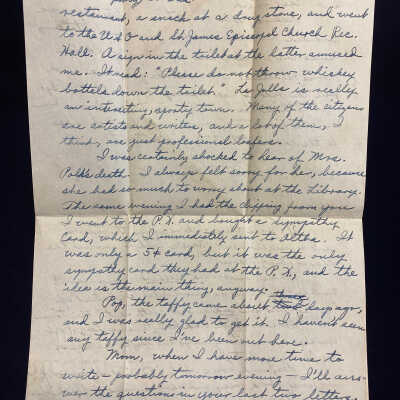 restaurant, a snack at a drug store, and went
to the USO and St. James Episcopal Church Rec.
Hall. A sign in the toilet at the latter amused
me. It read: "Please do not throw whiskey
bottels down the toilet." La Jolla is really
an interesting, arty town. Many of the citizens
are artists and writers, and a lot of them, I
think, are just professional loafers.
I was certainly shocked to hear of Mrs.
Polk's death. I always felt sorry for her, because
she had so much to worry about at the Library.
The same evening I had the clipping from you
I went to the P.X. and bought a sympathy
card, which I immediately sent to Altha. It
was only a 5¢ card, but it was the only
sympathy card they had at the P.X., and the
idea is the main thing, anyway.
Pop, the taffy came about two days ago,
and I was really glad to get it. I haven't seen
any taffy since I've been out here.
Mom, when I have more time to
write — probably tomorrow evening — I'll ans-
wer the questions in your last two letters.